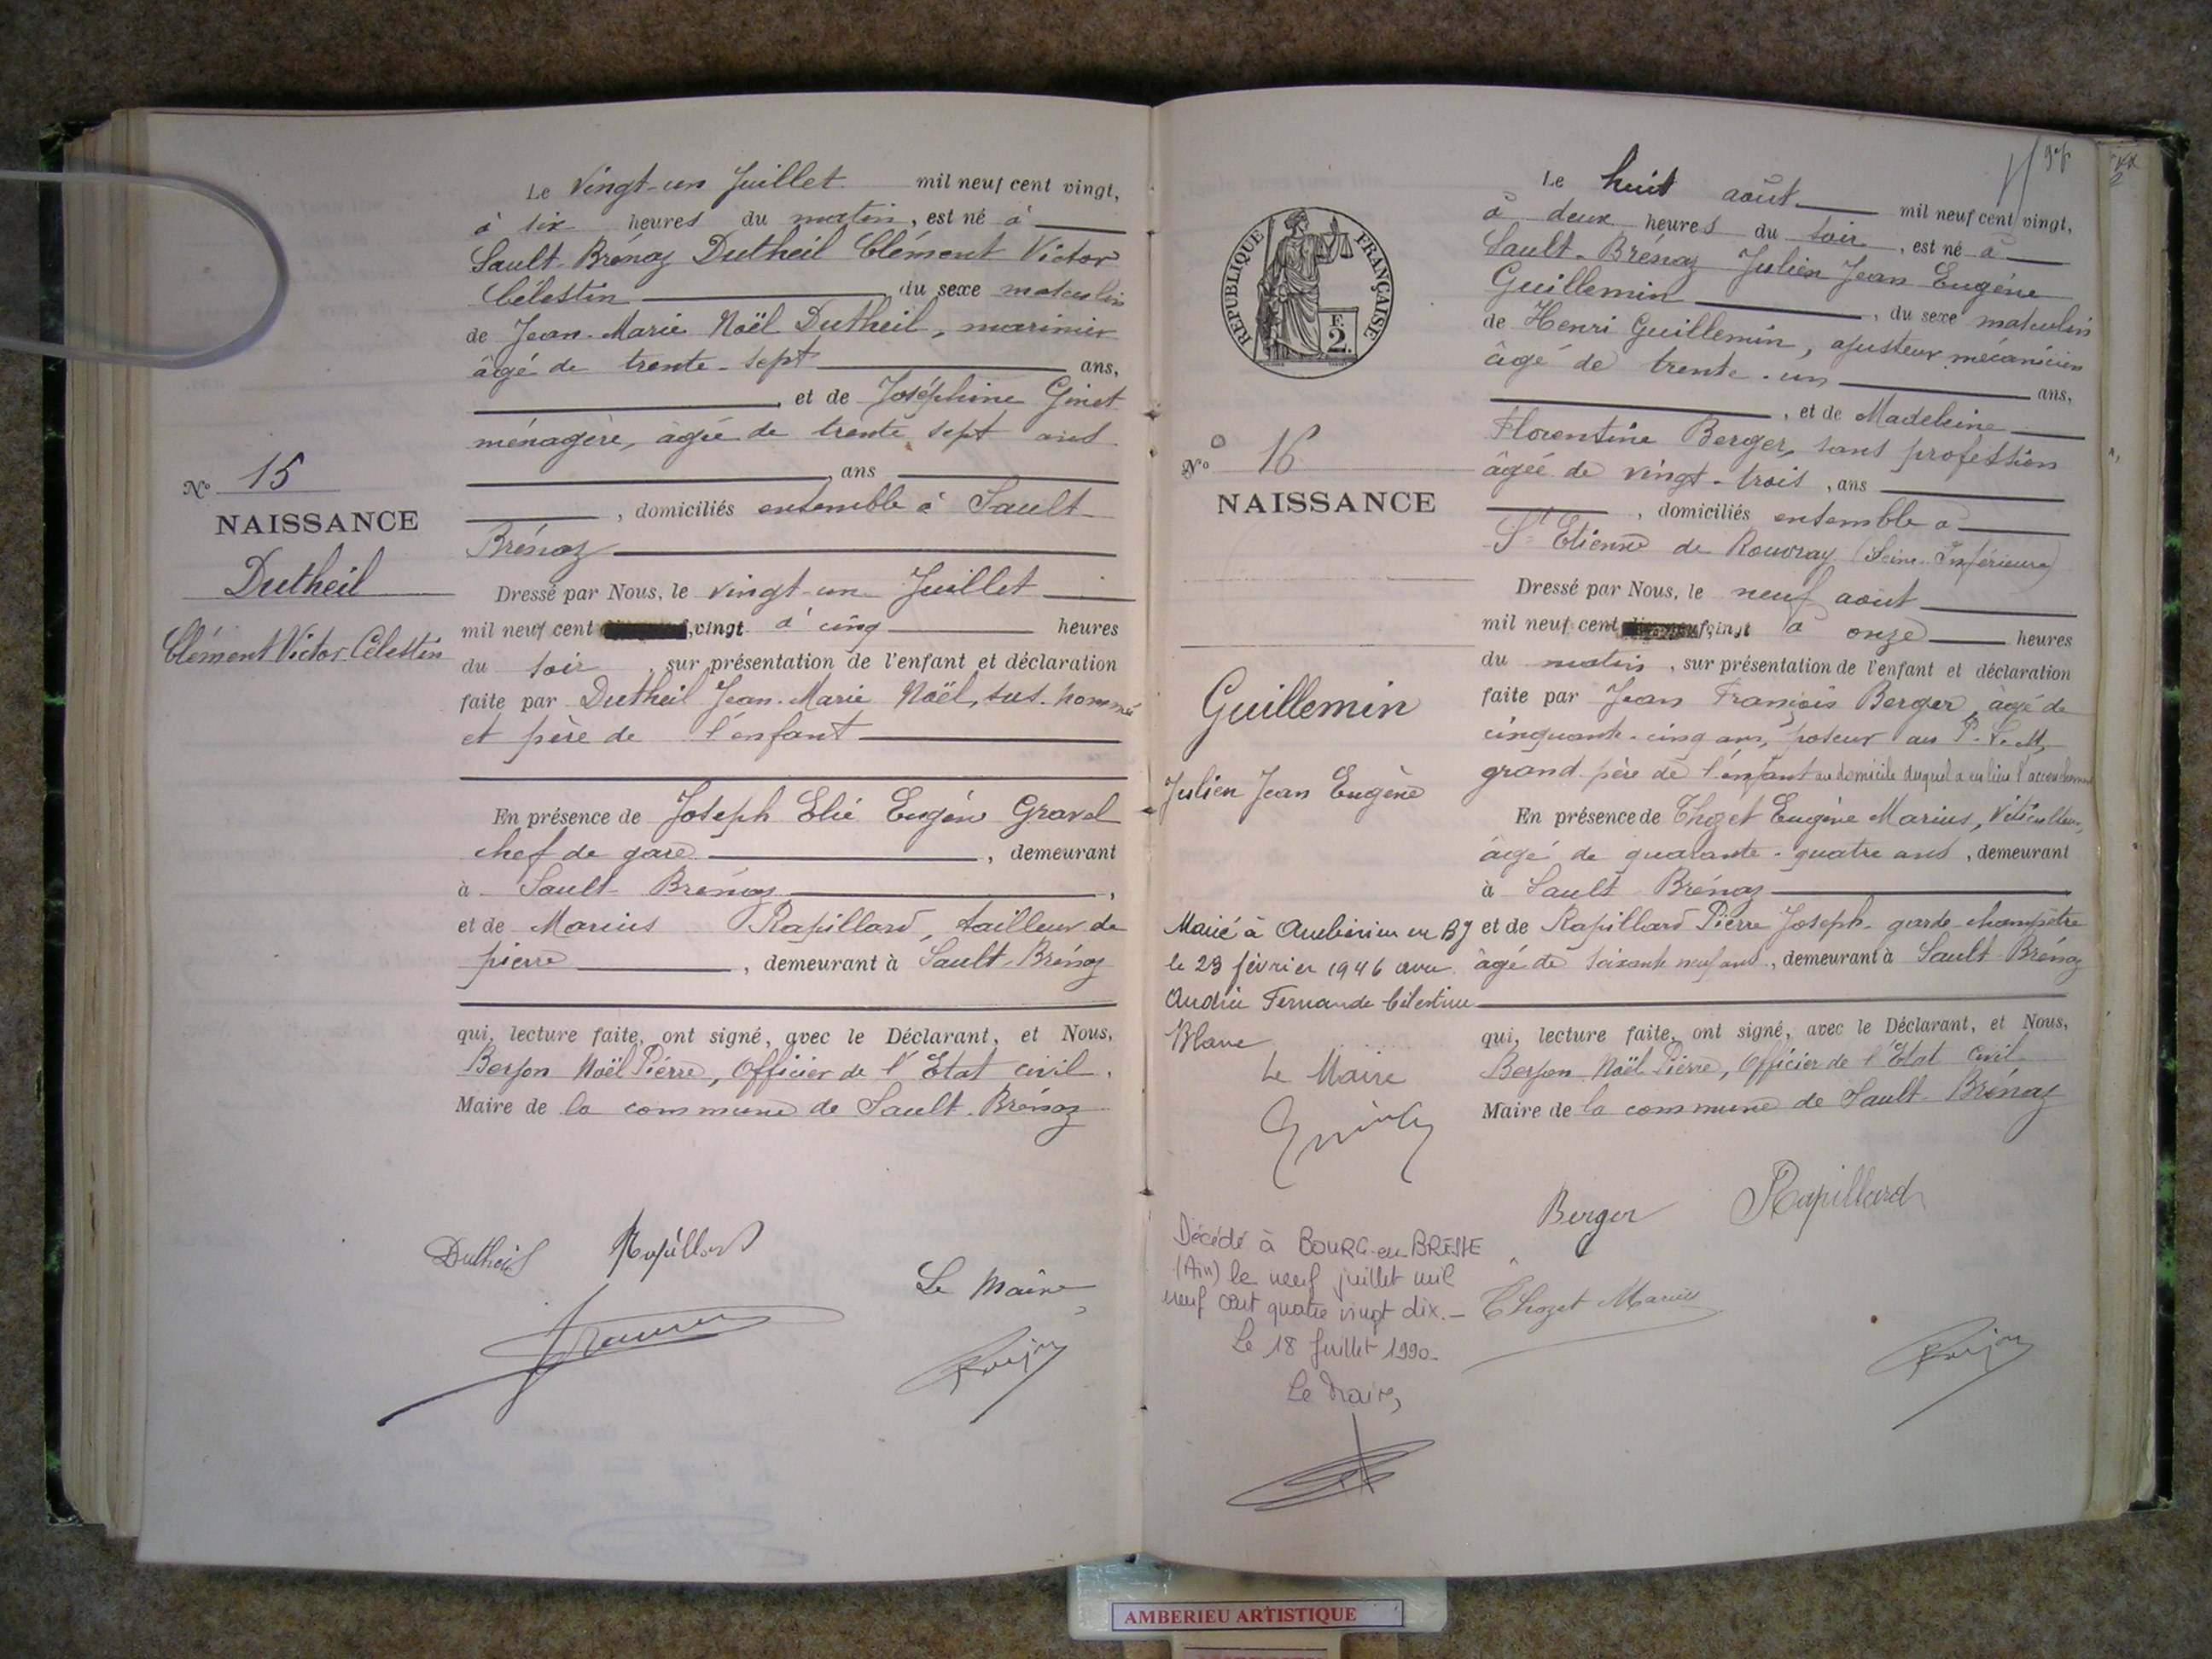 Le Vingt-un Juillet mil neuf cent vingt,
à six heures du matin, est né à
Sault-Brénaz Dutheil Clément Victor
Célestin du sexe masculin
de Jean-Marie Noël Dutheil, marinier
âgé de trente-sept ans,
, et de Joséphine Ginet
ménagère, âgée de trente sept ans
, ans
, domiciliés ensemble à Sault-
Brénaz
Dressé par Nous, le vingt-un Juillet
mil neuf cent vingt à cinq heures
du soir, sur présentation de l'enfant et déclaration
faite par Dutheil Jean-Marie Noël, sus-nommé
et père de l'enfant
En présence de Joseph Elié Eugène Gravel
chef de gare, demeurant
à Sault-Brénaz,
et de Marius Rapillard, tailleur de
pierre, demeurant à Sault-Brénaz
qui, lecture faite, ont signé, avec le Déclarant, et Nous,
Noël Pierre, Officier de l'Etat civil.
Maire de la commune de Sault-Brénaz
No 15
NAISSANCE
Dutheil
Clément Victor Célestin
Dutheil Rapillard
Le Maire
REPUBLIQUE FRANÇAISE
F.
2.
No 16
NAISSANCE
Guillemin
Julien Jean Eugène
Marié à Ambérieu en BJ
le 23 février 1946 avec
Andrée Fernande Célestine
Blanc
Le Maire
Décédé à BOURG-en-BRESSE
(Ain) le neuf juillet mil
neuf cent quatre vingt dix.-
Le 18 Juillet 1990-
Le Maire,
Le huit août mil neuf cent vingt,
à deux heures du soir, est né à
Sault-Brénaz Julien Jean Eugène
Guillemin, du sexe masculin
de Henri Guillemin, ajusteur mécanicien
âgé de trente-un ans,
, et de Madeleine
Florentine Berger, sans profession
âgée de vingt-trois, ans
, domiciliés ensemble à
St Etienne de Rouvray (Seine-Inférieure)
Dressé par Nous, le neuf août
mil neuf cent vingt à onze heures
du matin, sur présentation de l'enfant et déclaration
faite par Jean François Berger, âgé de
cinquante-cinq ans, poseur au P.L.M,
grand père de l'enfant au domicile duquel a eu lieu l'accouchement
En présence de Thozet Eugène Marius, Viticulteur,
âgé de quarante-quatre ans, demeurant
à Sault Brénaz
et de Rapillard Pierre Joseph garde-champêtre
âgé de soixante neuf ans, demeurant à Sault Brénaz
qui, lecture faite, ont signé, avec le Déclarant, et Nous,
Noël Pierre, Officier de l'Etat Civil
Maire de la commune de Sault-Brénaz
Berger Rapillard
Thozet Marius
AMBERIEU ARTISTIQUE